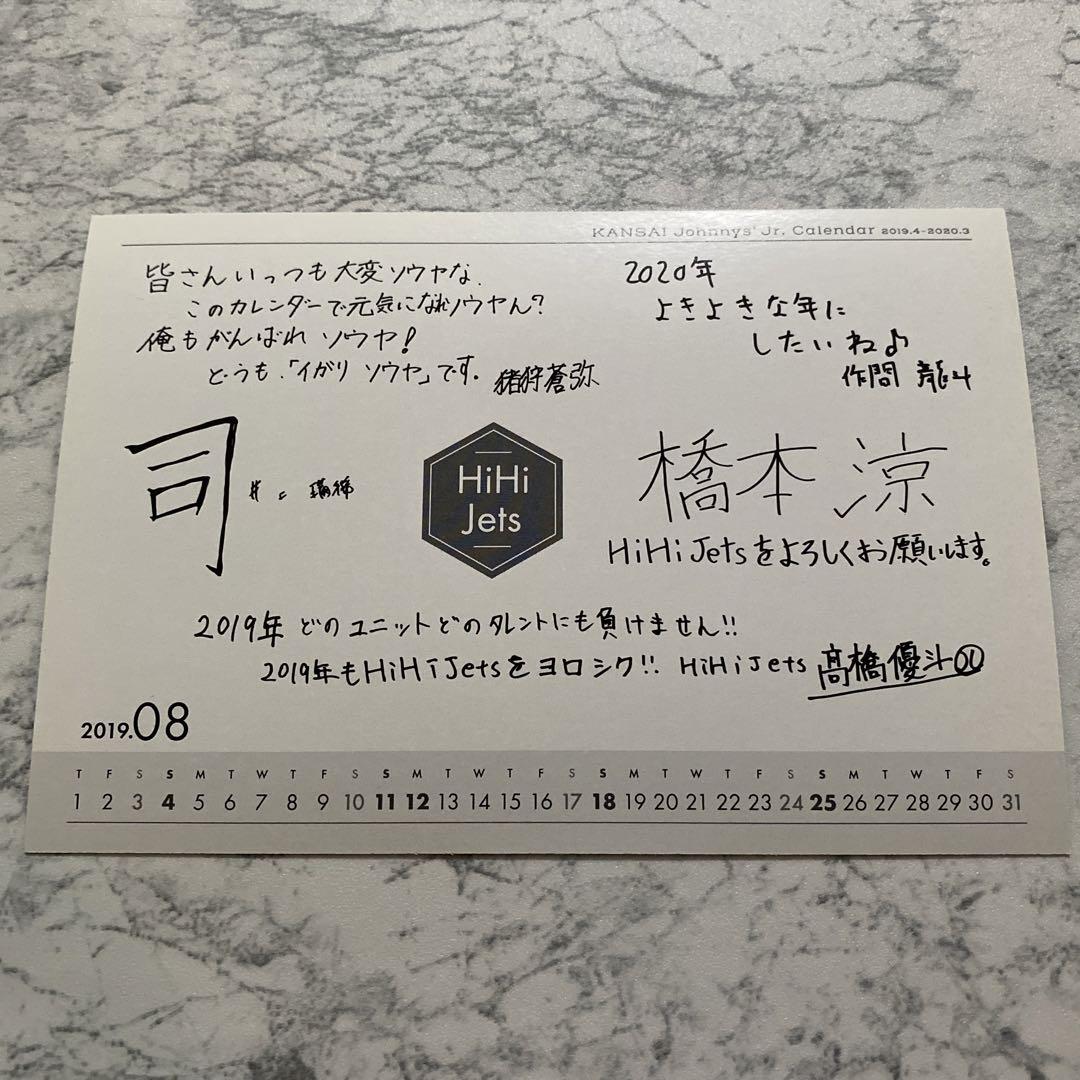 KANSAI Johnnys' Jr. Calendar 2019.4-2020.3
皆さんいっつも大変ソウヤな、
このカレンダーで元気になれソウヤん?
俺もがんばれ ソウヤ!
どうも、「イガリ ソウヤ」です。 猪狩蒼弥
2020年
よきよきな年に
したいね♪
作間 龍斗
司
井 瑞稀
HiHi
Jets
橋本 涼
HiHi Jetsをよろしくお願いします。
2019年 どのユニットどのタレントにも負けません!!
2019年もHiHiJetsをヨロシク!! HiHiJets 髙橋優斗㉑
2019.08
T F S S M T W T F S S M T W T F S S M T W T F S S M T W T F S
1 2 3 4 5 6 7 8 9 10 11 12 13 14 15 16 17 18 19 20 21 22 23 24 25 26 27 28 29 30 31